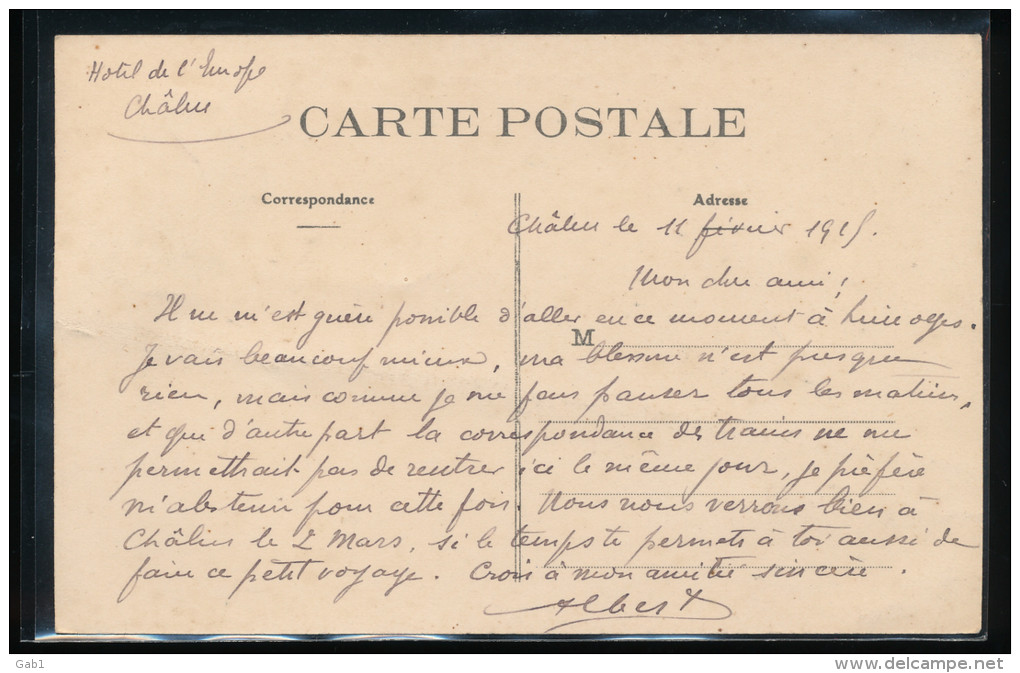 Hotel de l'Europe
Châlus
CARTE POSTALE
Correspondance
Adresse
Châlus le 11 février 1915.
Mon cher ami,
Il ne m'est guère possible d'aller en ce moment à Limoges.
M
Je vais beaucoup mieux, ma blessure n'est presque
rien, mais comme je me fais panser tous les matins,
et que d'autre part la correspondance des trains ne me
permettrait pas de rentrer ici le même jour, je préfère
m'abstenir pour cette fois. Nous nous verrons bien à
Châlus le 2 Mars, si le temps te permets à toi aussi de
faire ce petit voyage. Crois à mon amitié sincère.
Albert
Gab1
http://www.delcampe.net